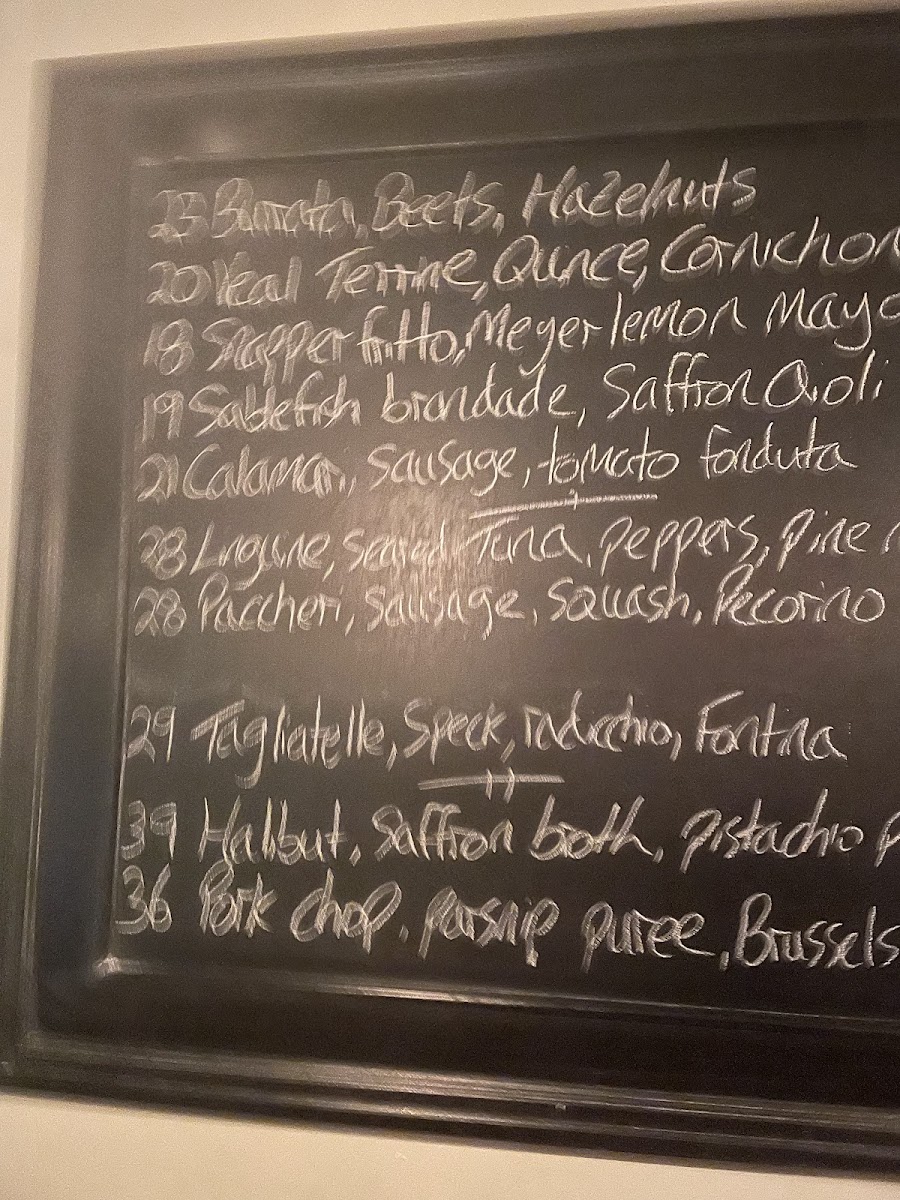 23 Burrata, Beets, Hazelnuts
20 Veal Terrine, Quince, Cornichon
18 Snapper fritto, Meyer lemon Mayo
19 Sablefish brandade, Saffron Aioli
21 Calamari, Sausage, tomato fonduta
28 Linguine, seared Tuna, peppers, pine
28 Paccheri, Sausage, Squash, Pecorino
29 Tagliatelle, Speck, radicchio, Fontina
39 Halibut, Saffron broth, pistachio p
36 Pork chop, parsnip puree, Brussels